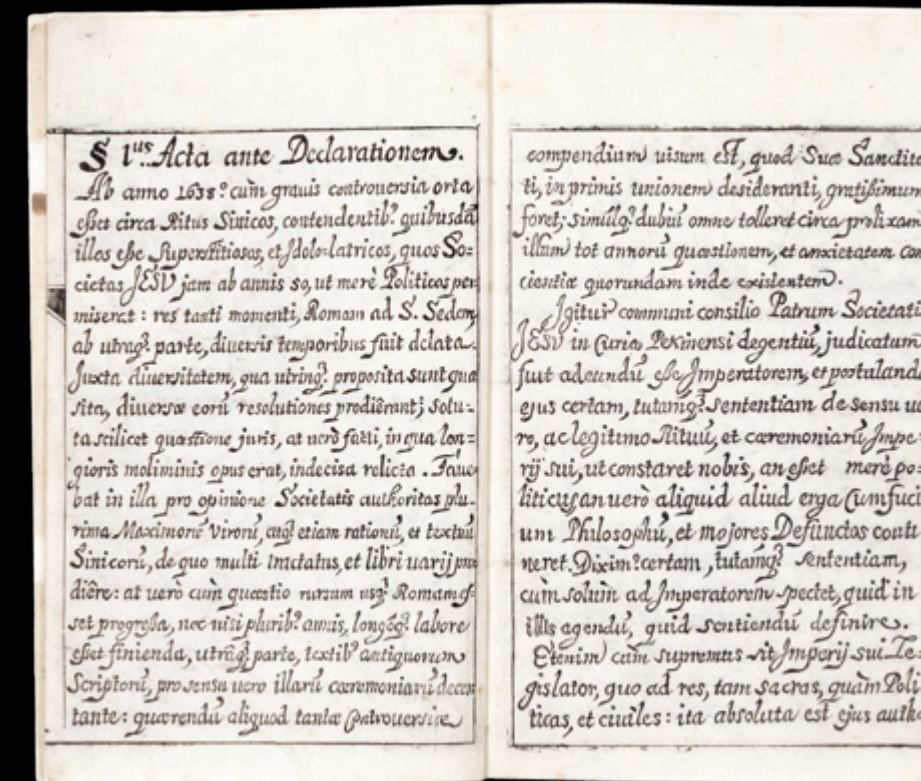 § 1.us Acta ante Declarationem.
Ab anno 1638? cùm grauis controuersia orta
eßet circa Ritus Sinicos, contendentib? quibusdã
illos eße Superstitiosos, et Idolo-latricos, quos So=
cietas JESV jam ab annis 50, ut merè Politicos per
miserat: res tanti momenti, Romam ad S. Sedem,
ab utraq? parte, diuersis temporibus fuit delata.
Juxta diuersitatem, qua utrinq? proposita sunt quæ
sita, diuersæ eorũ resolutiones prodiêrunt; solu=
ta scilicet quæstione juris, at uerò facti, in qua lon=
gioris moliminis opus erat, indecisa relicta. Faue
bat in illa pro opinione Societatis authoritas plu
rima Maximorũ Virorũ, atq? etiam rationũ, et textuũ
Sinicorũ, de quo multi tractatus, et libri uarij pro
diêre: at uerò cùm quæstio rursum usq? Romam es
set progreßa, nec nisi plurib? annis, longóq? labore
eßet finienda, utrâq? parte, textib? antiquorum
Scriptorũ, pro sensu uero illarũ cæremoniarũ decer
tante: quærendũ aliquod tantæ Controuersiæ
compendium uisum est, quod Suæ Sanctita
ti, in primis unionem desideranti, gratißimum
foret; simúlq? dubiũ omne tolleret circa prolixam
illam tot annorũ quæstionem, et anxietatem con
cientiæ quorundam inde existentem.
Igitur communi consilio Patrum Societatis
JESV in Curia Pekinensi degentiũ, judicatum
fuit adeundũ eße Imperatorem, et postulandã
ejus certam, tutamq? sententiam de sensu ue
ro, ac legitimo Rituũ, et cæremoniarũ Impe-
rij sui, ut constaret nobis, an eßet merè po=
liticus, an uerò aliquid aliud erga Cumfuci
um Philosophũ, et majores Defunctos conti
neret. Dixim? certam, tutamq? sententiam,
cùm solùm ad Imperatorem spectet, quid in
illis agendũ, quid sentiendũ definire.
Etenim cùm supremus sit Imperij sui Le=
gislator, quo ad res, tam sacras, quàm Poli
ticas, et ciuiles: ita absoluta est ejus autho